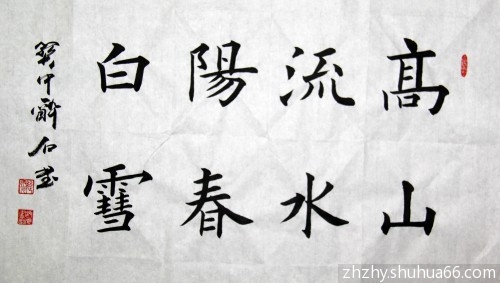 高山
流水
陽春
白雪
zhzhy.shuhua66.com